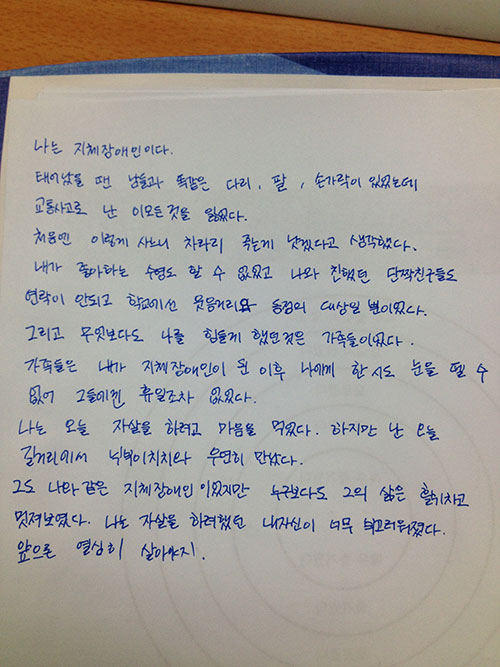 나는 지체장애인이다.
태어났을 땐 남들과 똑같은 다리, 팔, 손가락이 있었는데
교통사고로 난 이모든것을 잃었다.
처음엔 이렇게 사느니 차라리 죽는게 낫겠다고 생각했다.
내가 좋아하는 수영도 할 수 없었고 나와 친했던 단짝친구들도
연락이 안되고 학교에선 웃음거리와 동정의 대상일 뿐이었다.
그리고 무엇보다도 나를 힘들게 했던것은 가족들이었다.
가족들은 내가 지체장애인이 된 이후 나에게 한시도 눈을 뗄 수
없어 그들에겐 휴일조차 없었다.
나는 오늘 자살을 하려고 마음을 먹었다. 하지만 난 오늘
길거리에서 닉부이치치와 우연히 만났다.
그도 나와같은 지체장애인이었지만 누구보다도 그의 삶은 활기차고
멋져보였다. 나는 자살을 하려했던 내자신이 너무 부끄러워졌다.
앞으론 열심히 살아야지.